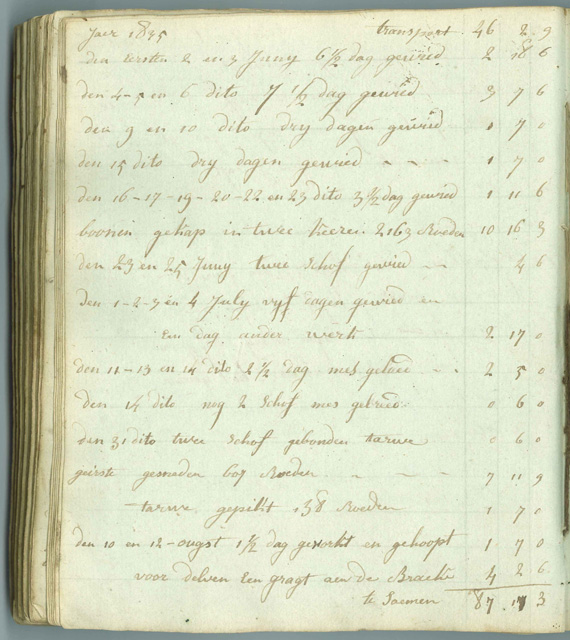 Jaer 1835 transport 46 2 9
den eersten 2 en 3 Juny 6 1/2 dag gewied 2 18 6
den 4-5 en 6 dito 7 1/2 dag gewied 3 7 6
den 9 en 10 dito dry dagen gewied 1 7 0
den 15 dito dry dagen gewied - - - 1 7 0
den 16-17-19-20-22 en 23 dito 3 1/2 dag gewied 1 11 6
boonen gekap in twee keeren 2163 Roeden 10 16 3
den 23 en 25 Juny twee schof gewied - - 4 6
den 1-2-3 en 4 July vyf dagen gewied en
een dag ander werk 2 17 0
den 11-13 en 14 dito 2 1/2 dag mes gelaed - - 2 5 0
den 14 dito nog 2 schof mes 0 6 0
den 31 dito twee schof gebonden tarwe 0 6 0
geirste gesneden Roeden - - - 7 11 9
tarwe gepikt 138 Roeden 1 7 0
den 10 en 12 ougst 1 1/2 dag en gehoopt 1 7 0
voor delven een gragt aen de 4 2 6
te saemen 87 17 3